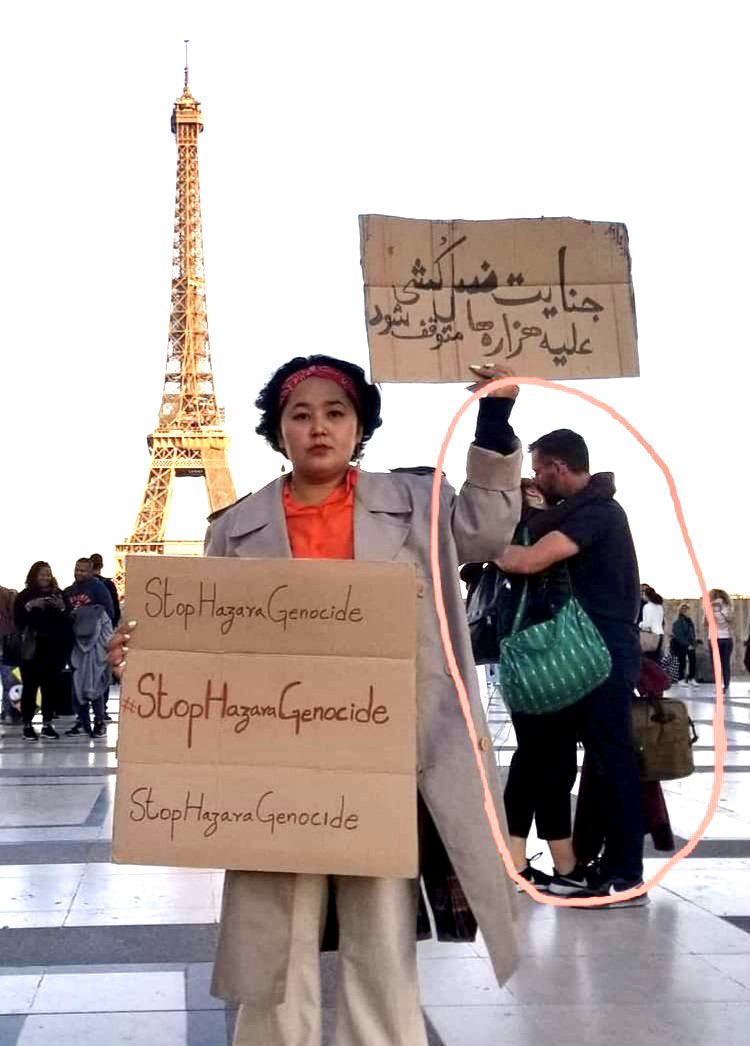 جنایت ضد کُشی
علیه هزاره ها متوقف شود
StopHazaraGenocide
#StopHazaraGenocide
StopHazaraGenocide